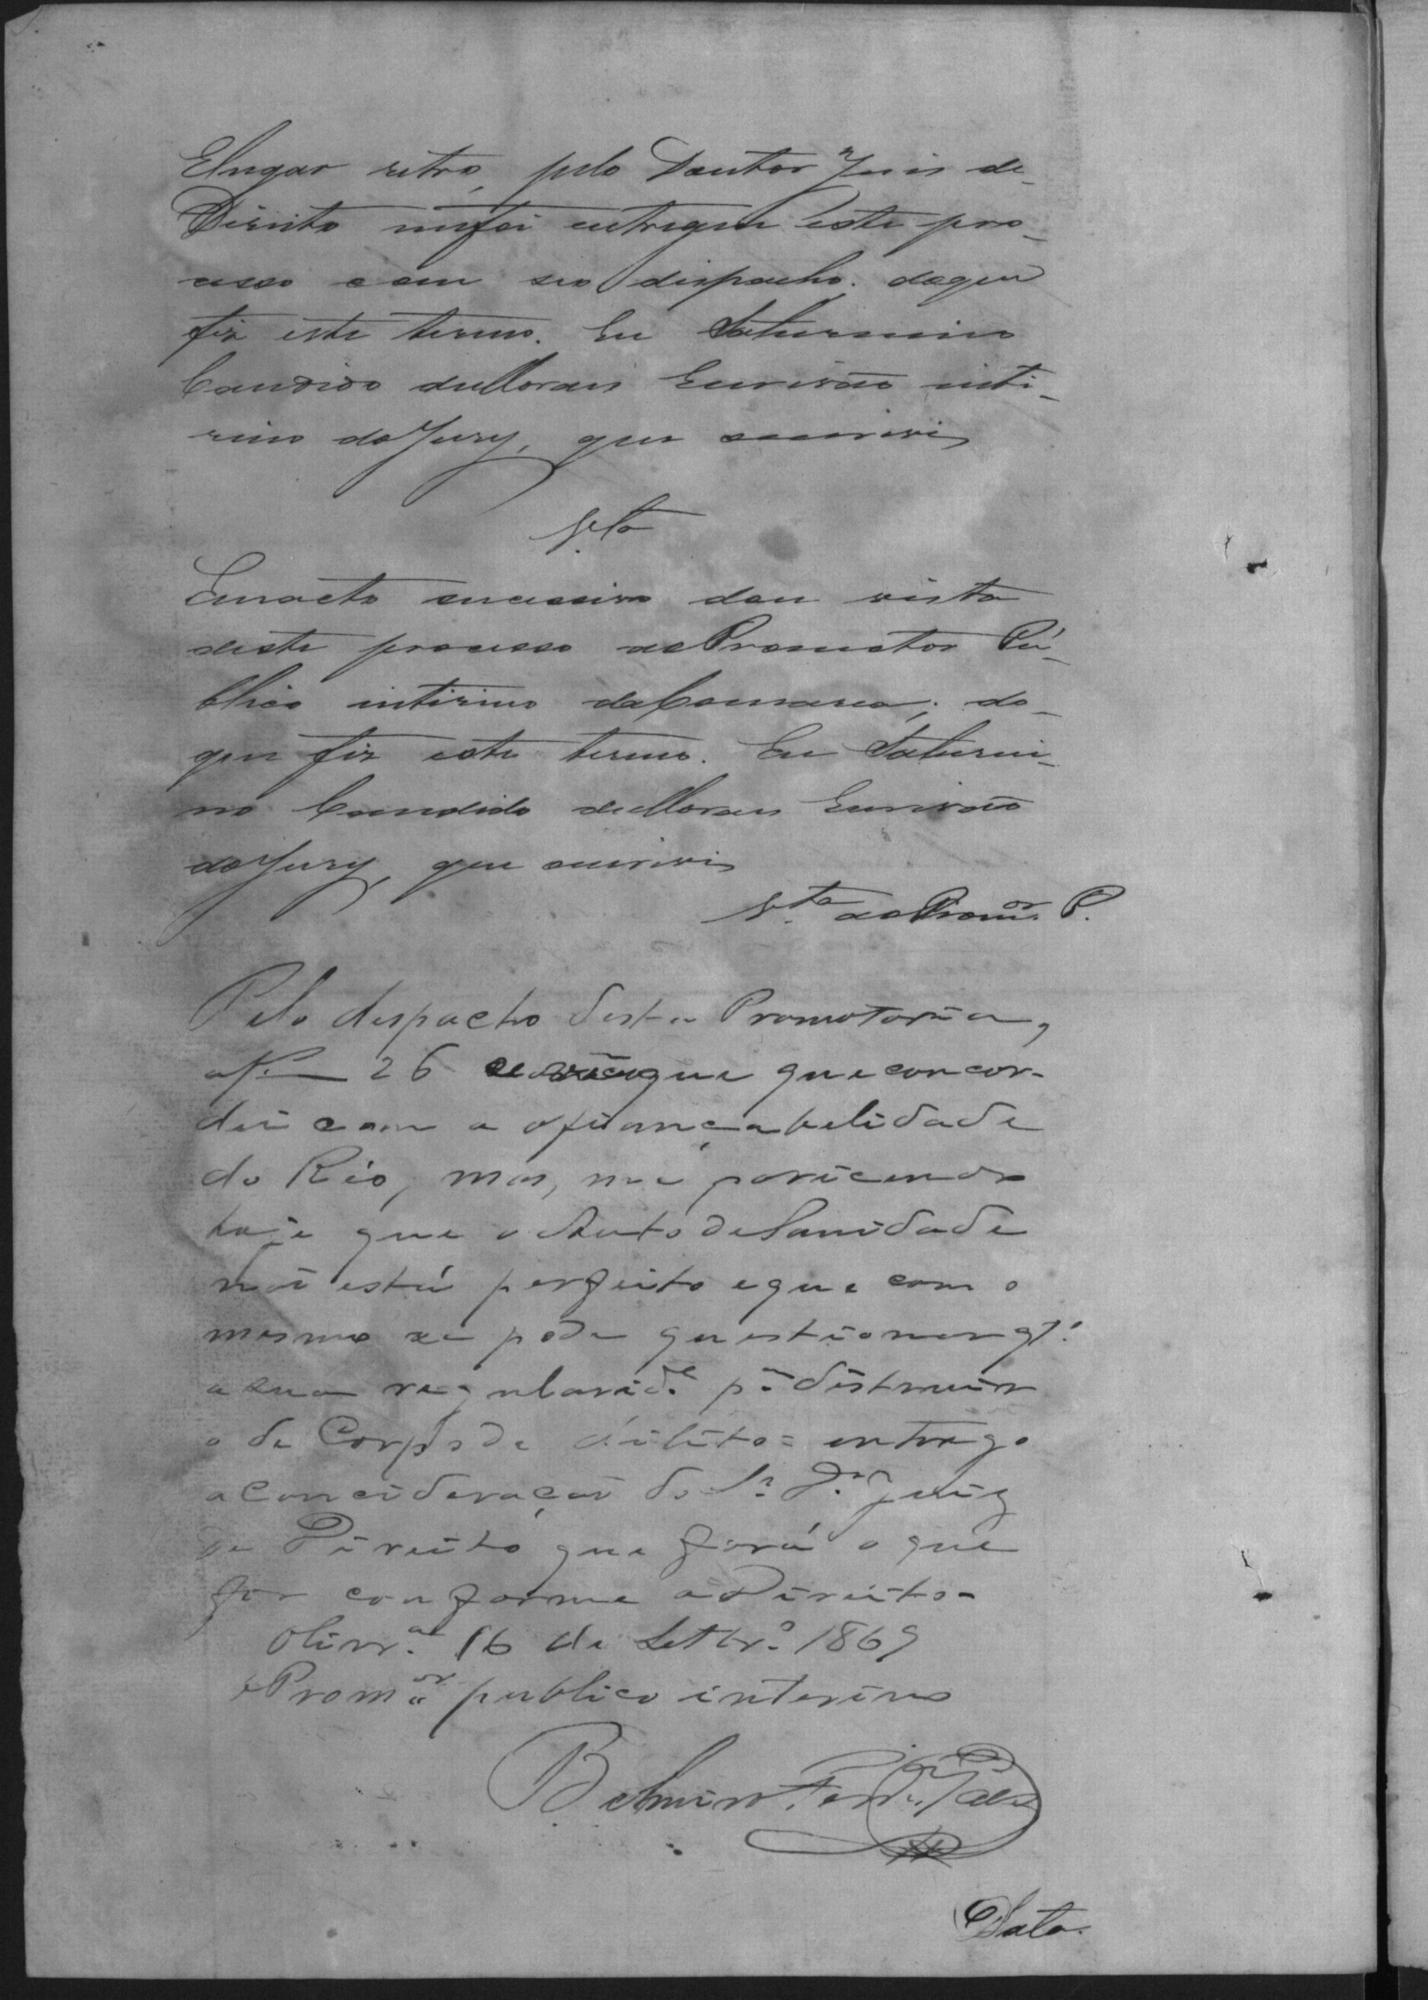 E lugar retro, pelo Doutor Juis de
Direito me foi entregue este pro-
cesso com seo despacho. do que
fiz este termo. Eu Saturnino
Candido de Moraes Escrivão inte-
rino do Jury, que escrivi
V.ta
Em acto sucessivo dou vista
deste processo ao Promotor Pú-
blico interino da Comarca; do
que fiz este termo. Eu Saturni-
no Candido de Moraes Escrivão
do Jury, que escrivi
V.ta ao Prom.or P.
Pelo despacho desta Promotoria,
a f. 26 que concor-
dei com a afiançabelidade
do Réo, mas, me parecendo
hoje que o Auto de Sanidade
não está perfeito e que com o
mesmo se pode questionar q.to
a sua regularid.e p.a distruir
o de Corpo de dilito = entrego
a concideração do S.r D.r Juiz
de Direito que fará o que
for conforme a Direito =
Oliv.ra 16 de Setbr.o 1869
o Prom.or publico interino
Belmiro
Data